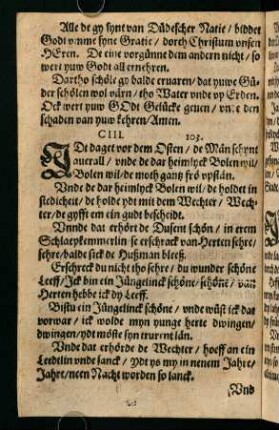 Alle de gy synt van Düdescher Natie / biddet
Godt vmme syne Gratie / dorch Christum vnsen
HEren. De eine vorgünne dem andern nicht / so
wert yuw Godt all ernehren.
Dartho schöle gy balde ervaren / dat yuwe Gü-
der schölen wol värn / tho Water vnde vp Erden.
Ock wert yuw GOdt Gelücke geuen / vnde den
schaden van yuw kehren / Amen.
CIII. 103.
IDe daget vor dem Osten / de Mân schynt
auerall / vnde de dar heimlyck Bolen wil /
Bolen wil / de moth gantz frö vpstân.
Vnde de dar heimlyck Bolen wil / de holdet in
stedicheit / de holde ydt mit dem Wechter / Wech-
ter / de gyfft em ein gudt bescheidt.
Vnnde dat erhört de Dusent schön / in erem
Schlaepkemmerlin se erschrack van Herten sehre /
sehre / balde sick de Hußman bleeß.
Erschreck du nicht tho sehre / du wunder schöne
Leeff / Ick bin ein Jüngelinck schöne / schöne / van
Herten hebbe ick dy Leeff.
Bistu ein Jüngelinck schöne / vnde wüst ick dat
vorwar / ick wolde myn yunge herte dwingen /
dwingen / ydt möste syn trurent lân.
Vnde dat erhörde de Wechter / hoeff an ein
Leedtlin vnde sanck / ydt ys my in nenem Jahre /
Jahre / neen Nacht worden so lanck.
Vnd